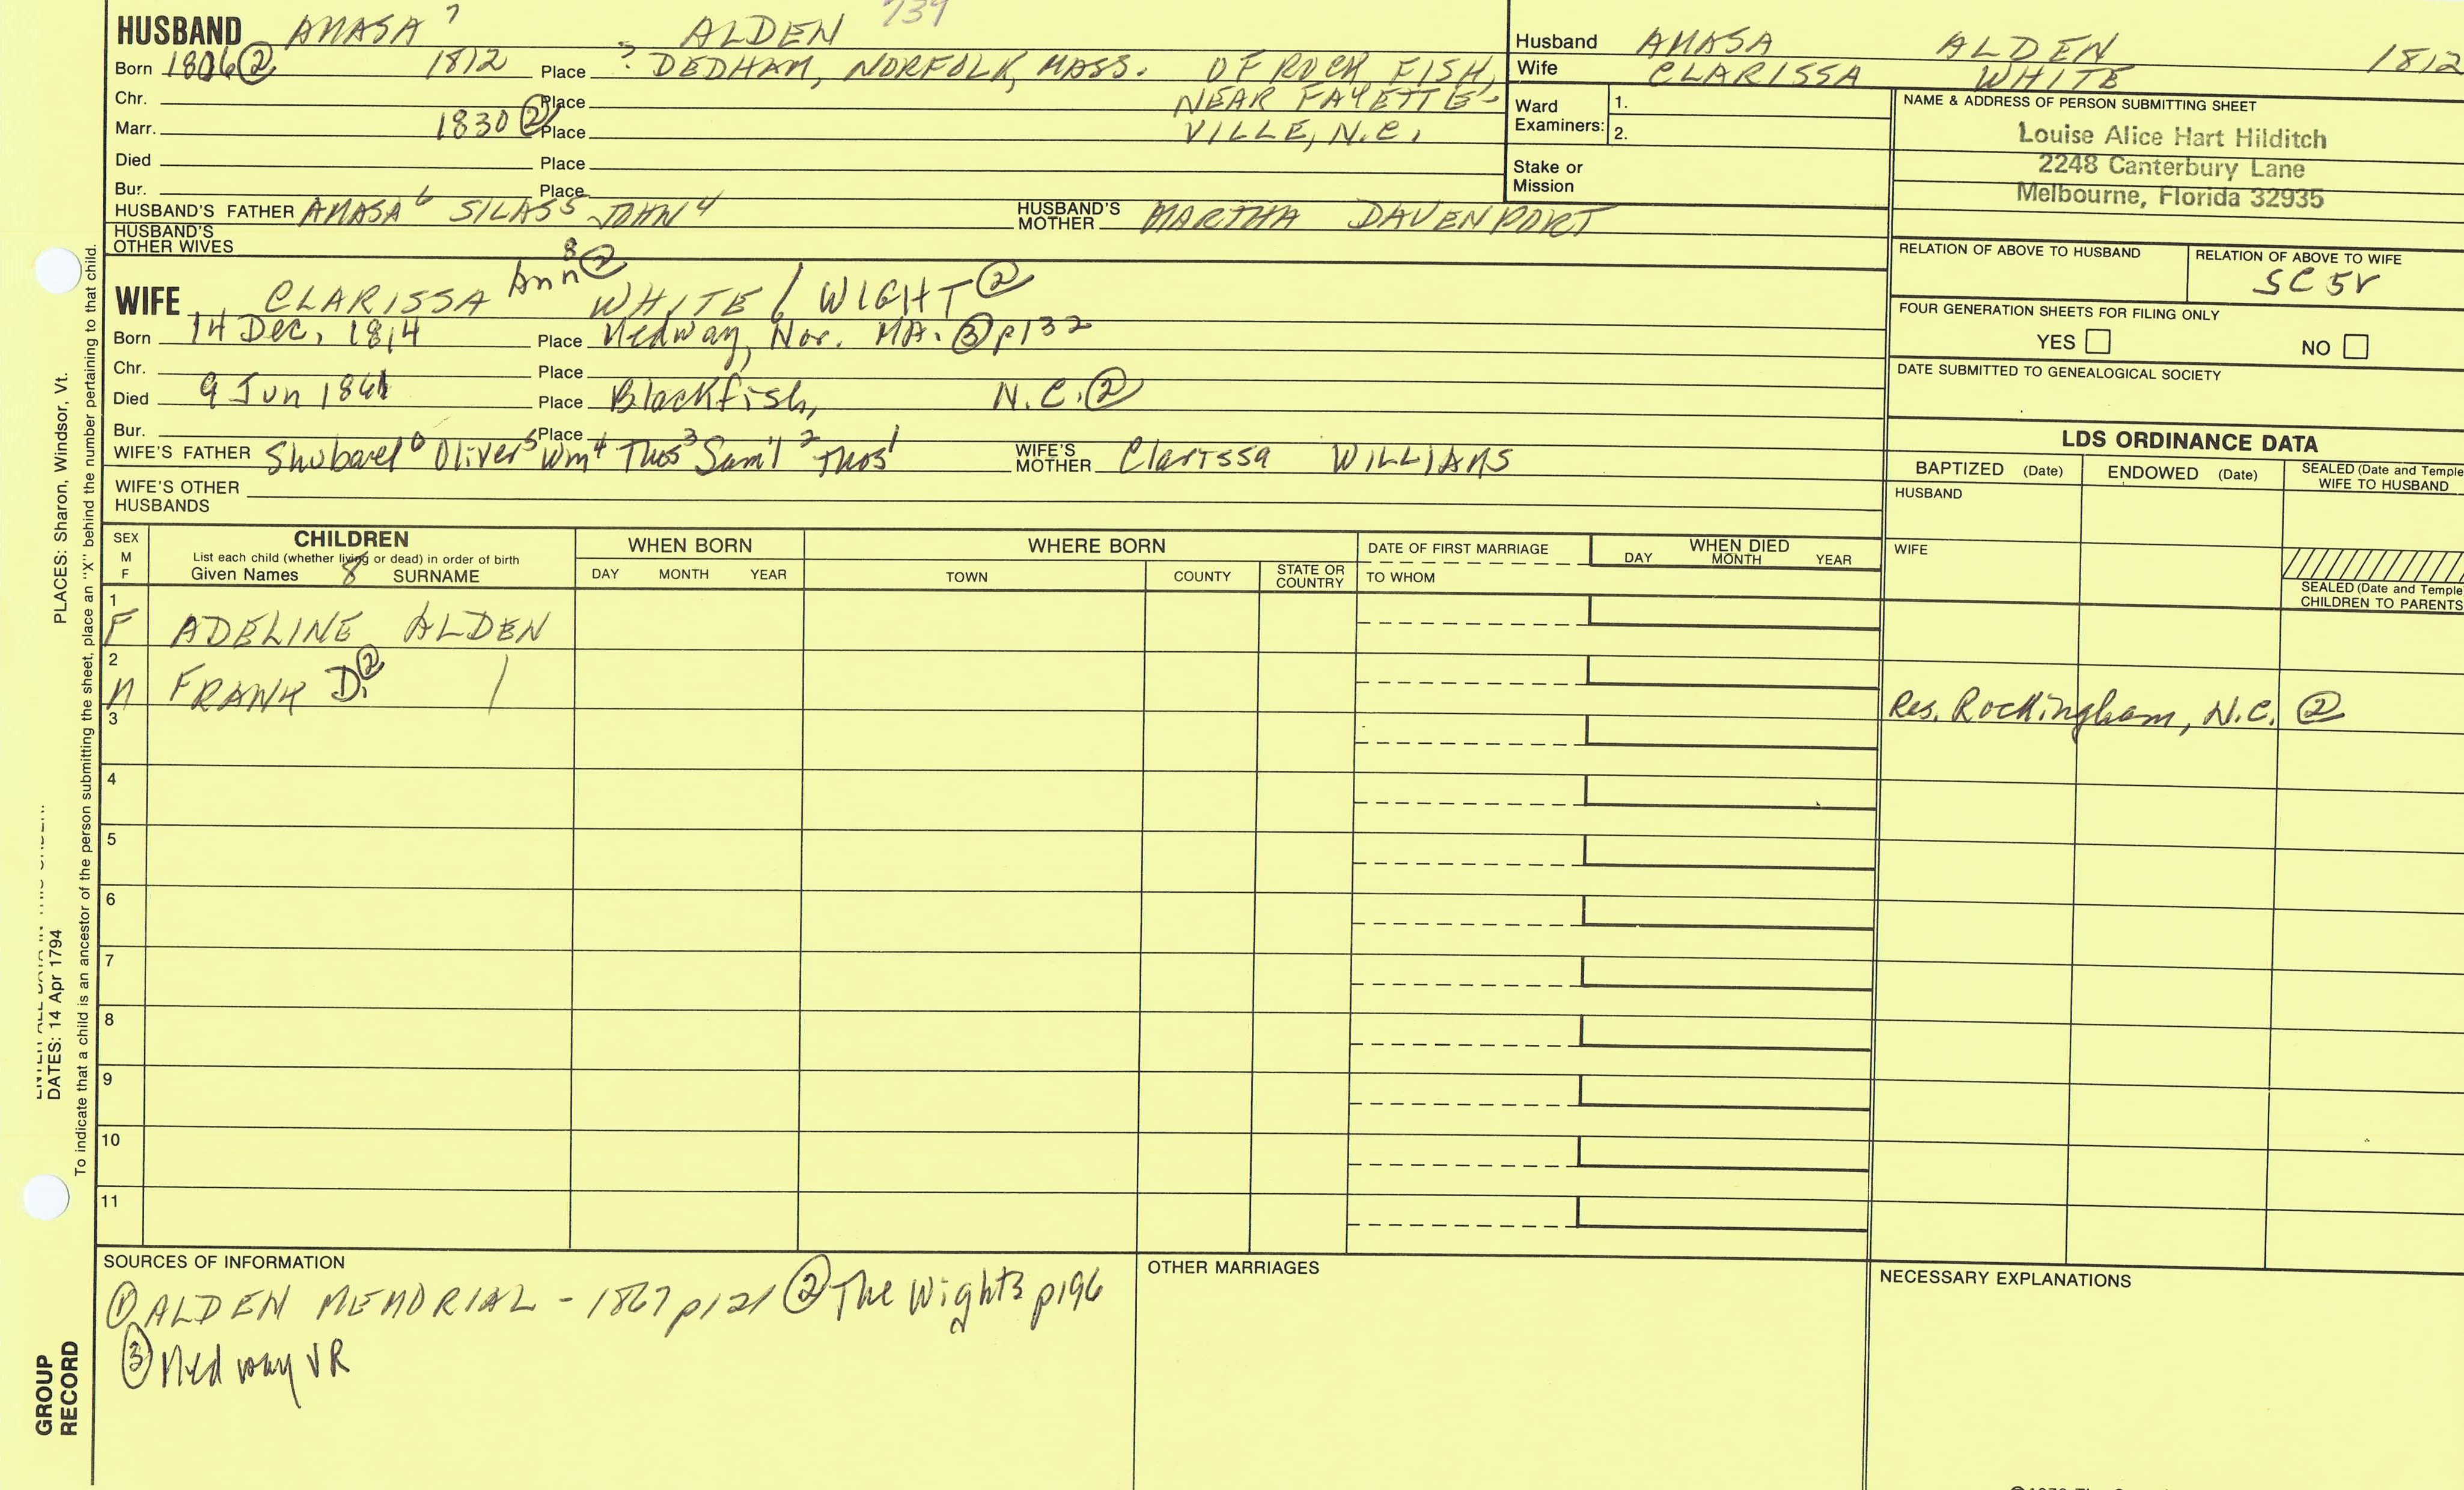 HUSBAND AMASA 7 ALDEN 739
Born 1806 ② 1812 Place ? DEDHAM, NORFOLK, MASS. OF ROCK FISH,
Chr. Place NEAR FAYETTE-
Marr. 1830 ② Place VILLE, N.C.
Died Place
Bur. Place
HUSBAND'S FATHER AMASA 6 SILAS 5 JOHN 4 HUSBAND'S MOTHER MARTHA DAVENPORT
HUSBAND'S OTHER WIVES
WIFE CLARISSA Ann 8 ② WHITE / WIGHT ②
Born 14 Dec, 1814 Place Medway, Nor. MA. ③ p132
Chr. Place
Died 9 Jun 1861 Place Blackfish, N.C. ②
Bur. Place
WIFE'S FATHER Shubael 6 Oliver 5 Wm 4 Thos 3 Sam'l 2 Thos 1 WIFE'S MOTHER Clarissa WILLIAMS
WIFE'S OTHER HUSBANDS
Husband AMASA ALDEN 1812
Wife CLARISSA WHITE
Ward Examiners: 1.
2.
Stake or Mission
NAME & ADDRESS OF PERSON SUBMITTING SHEET
Louise Alice Hart Hilditch
2248 Canterbury Lane
Melbourne, Florida 32935
RELATION OF ABOVE TO HUSBAND RELATION OF ABOVE TO WIFE
SC 5r
FOUR GENERATION SHEETS FOR FILING ONLY
YES NO
DATE SUBMITTED TO GENEALOGICAL SOCIETY
LDS ORDINANCE DATA
BAPTIZED (Date) ENDOWED (Date) SEALED (Date and Temple
WIFE TO HUSBAND
HUSBAND
WIFE
SEALED (Date and Temple
CHILDREN TO PARENTS
SEX CHILDREN WHEN BORN WHERE BORN DATE OF FIRST MARRIAGE WHEN DIED
M List each child (whether living or dead) in order of birth DAY MONTH YEAR
F Given Names 8 SURNAME DAY MONTH YEAR TOWN COUNTY STATE OR COUNTRY TO WHOM
1
F ADELINE ALDEN
2
M FRANK D. ② Res. Rockingham, N.C. ②
3
4
5
6
7
8
9
10
11
SOURCES OF INFORMATION
① ALDEN MEMORIAL - 1867 p121 ② The Wights p196
③ Medway VR
OTHER MARRIAGES
NECESSARY EXPLANATIONS
PLACES: Sharon, Windsor, Vt.
DATES: 14 Apr 1794
To indicate that a child is an ancestor of the person submitting the sheet, place an "X" behind the number pertaining to that child.
GROUP
RECORD